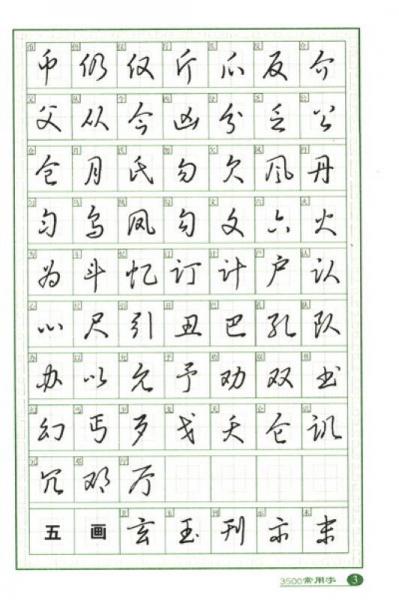 币仍仅斤爪反介
父从今凶分乏公
仓月氏勿欠风丹
匀乌凤勾文六火
为斗忆订计户认
心尺引丑巴孔队
办以允予劝双书
幻丐歹戈夭仑讥
冗邓厅
五画玄玉刊示末
3500常用字 3